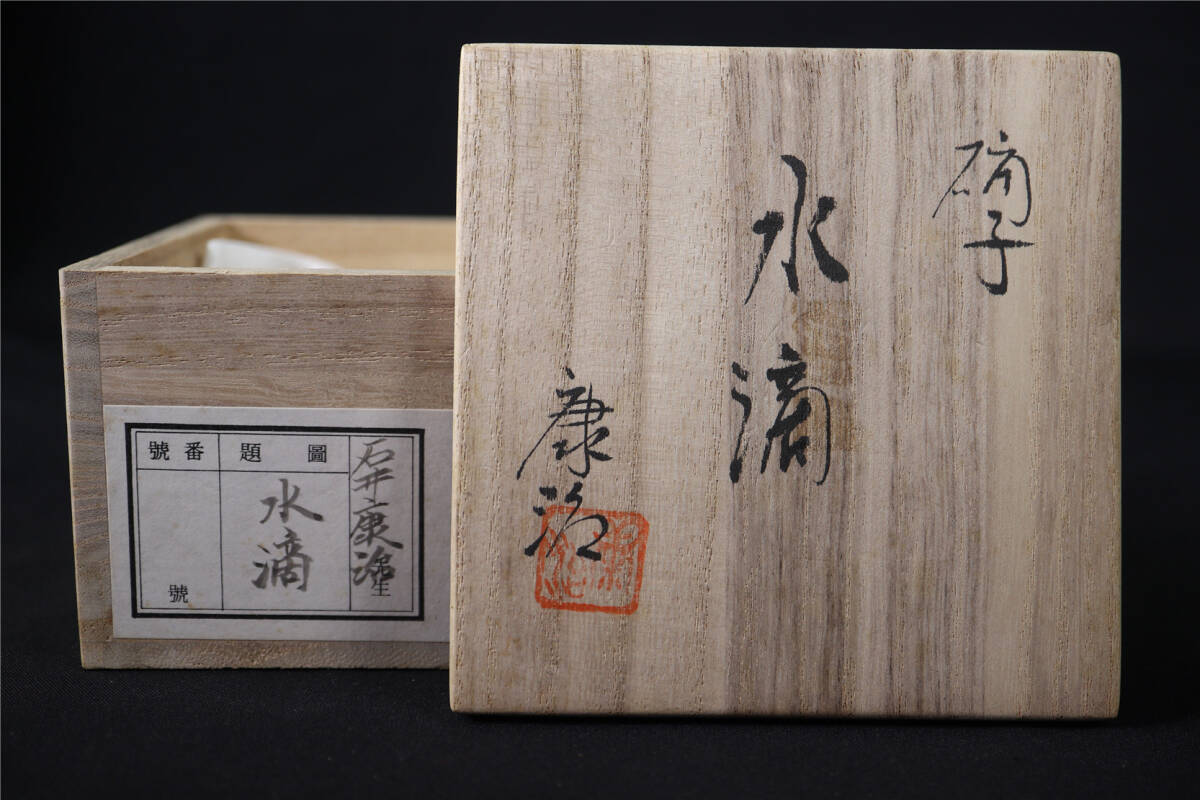 硝子
水滴
康治
石井康治先生
圖題
水滴
番號
號